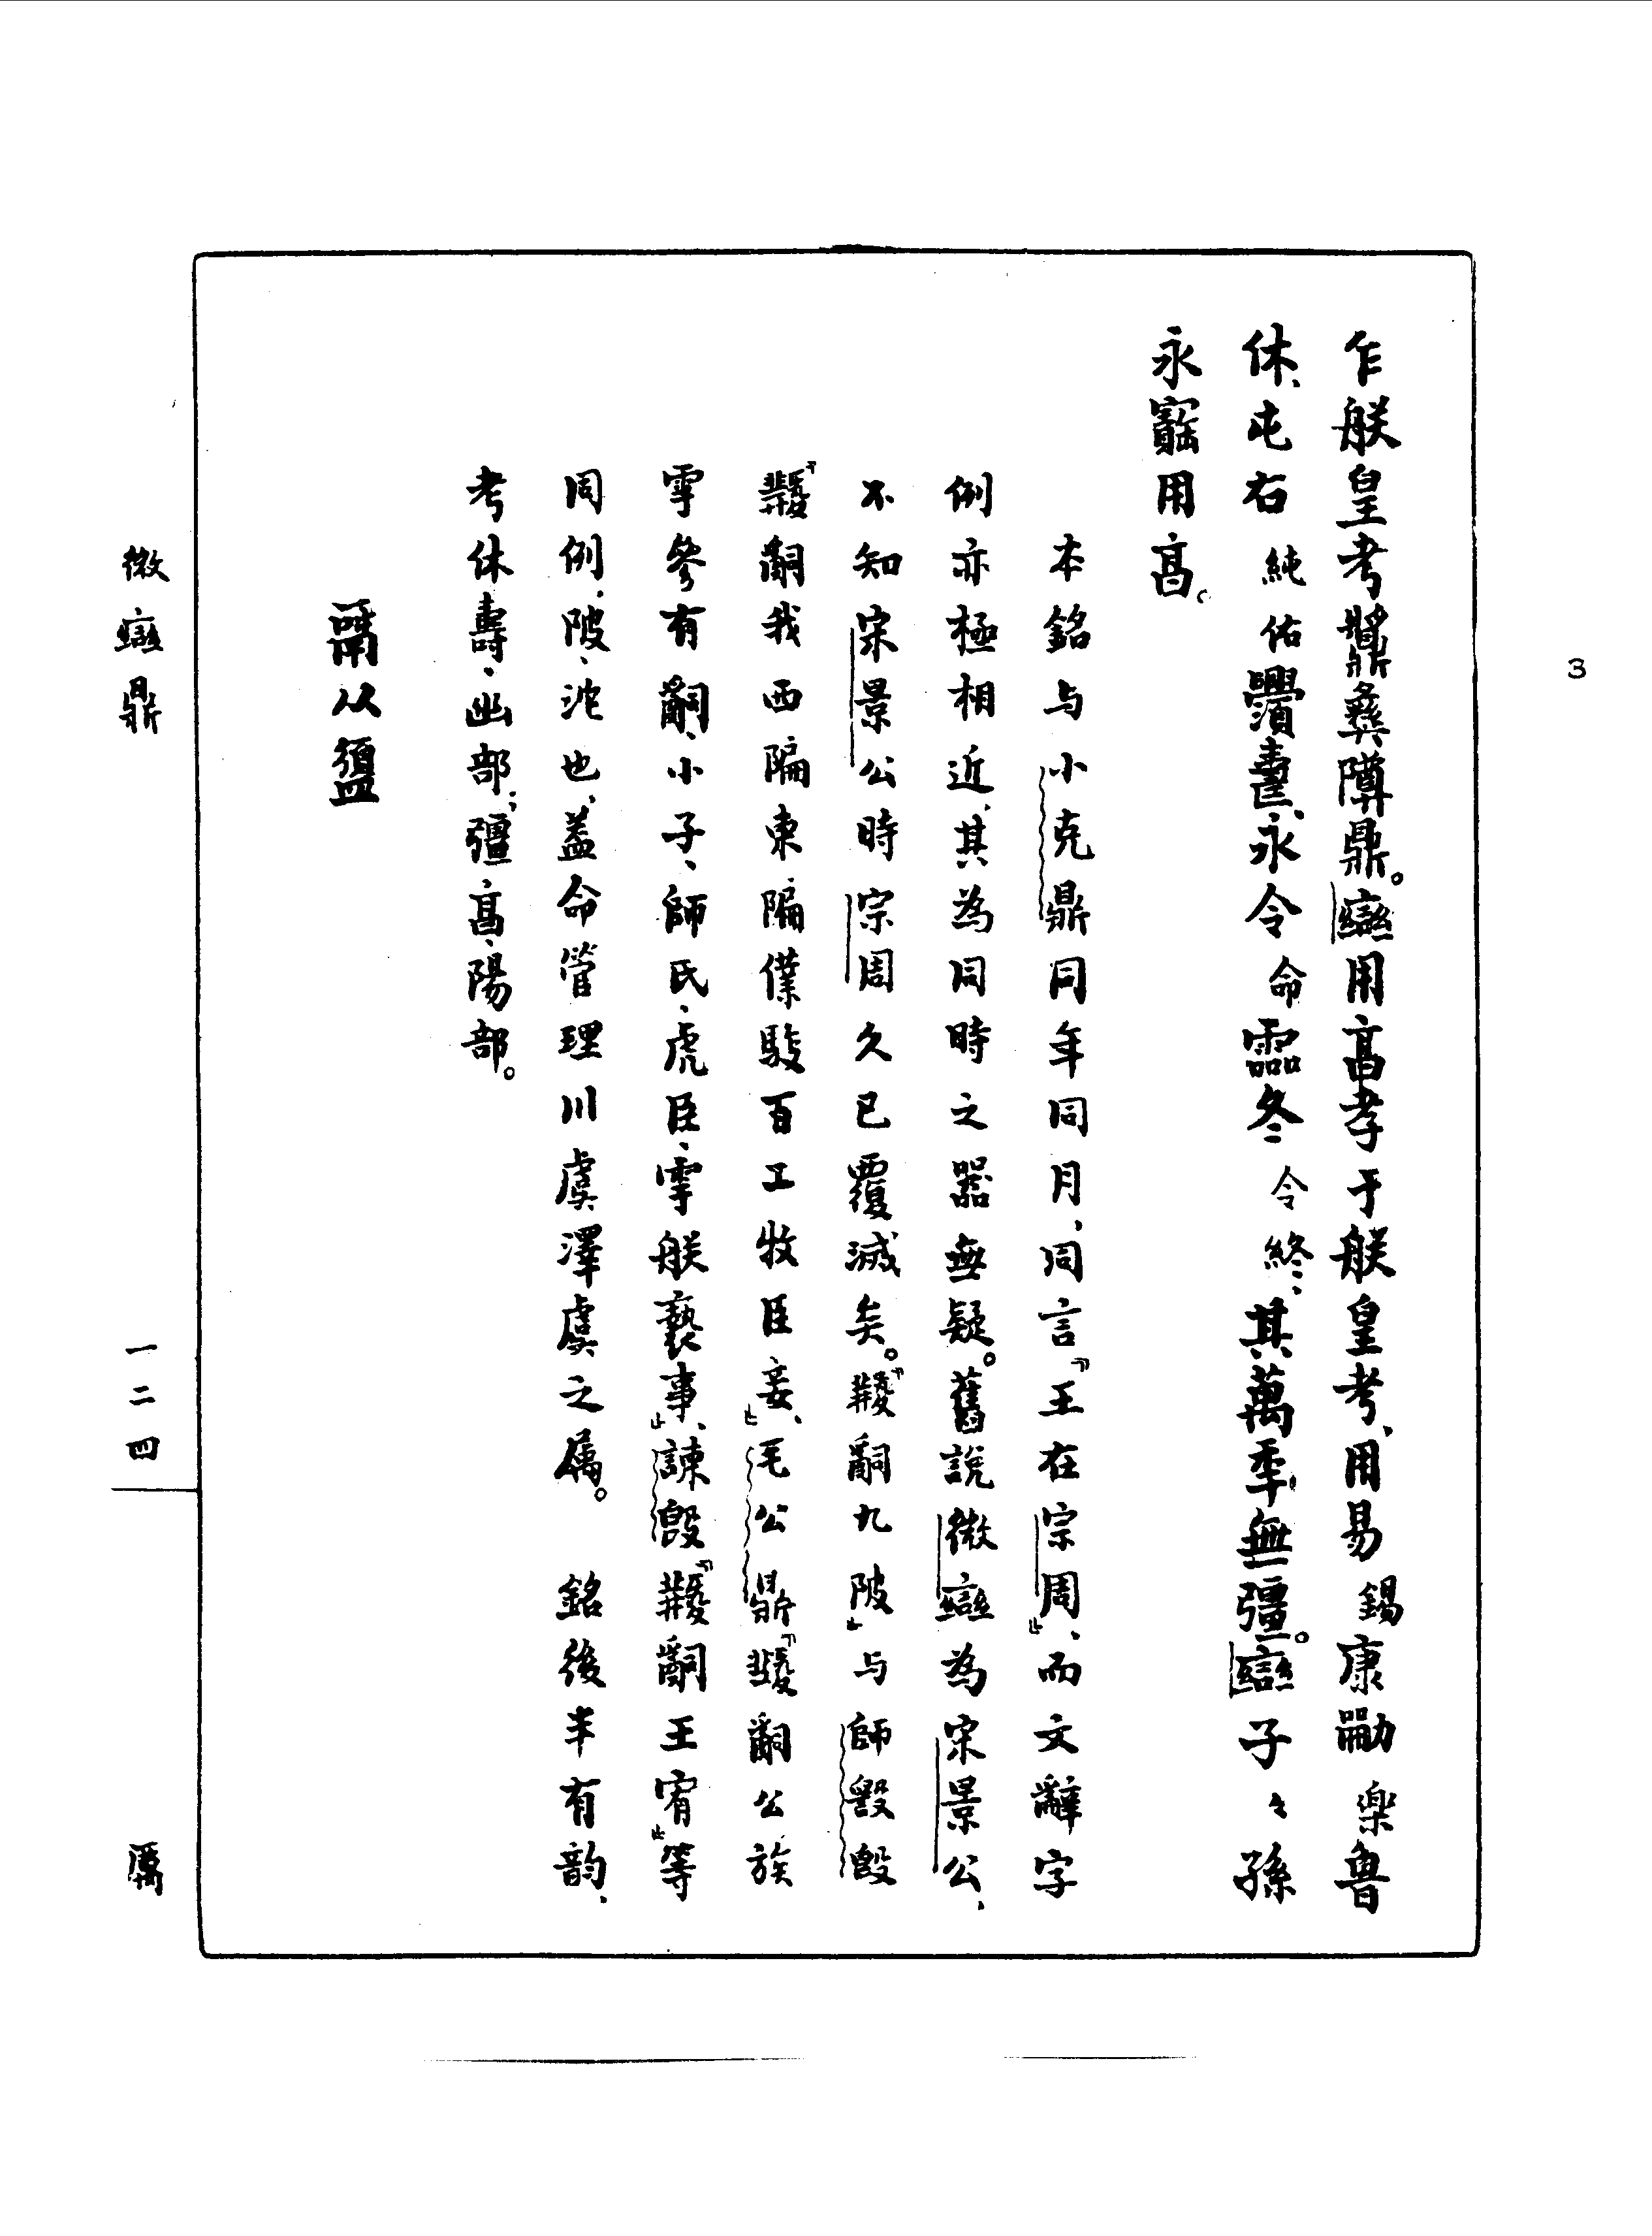 乍朕皇考𩰫彝䵼鼎。䜌用亯孝于朕皇考、用易錫康勵樂魯
休、屯右純佑釁壽、永令命霝冬令終、其萬年無彊。䜌子〻孫
永寶用亯。
本銘与小克鼎同年同月、同言「王在宗周」、而文辭字
例亦極相近、其為同時之器無疑。舊說微䜌為宋景公、
不知宋景公時宗周久已覆滅矣。「𤔲九陂」与師毀𣪘
「𤔲我西隔東隔僕駿百工牧臣妾」、毛公鼎「𤔲公族
雩參有𤔲、小子、師氏、虎臣、雩朕褻事」、諫𣪘「𤔲王宥」等
同例、陂、沱也、蓋命管理川虞澤虞之属。 銘後半有韵、
考休壽、幽部;彊亯、陽部。
从盨
微䜌鼎
一二四
3